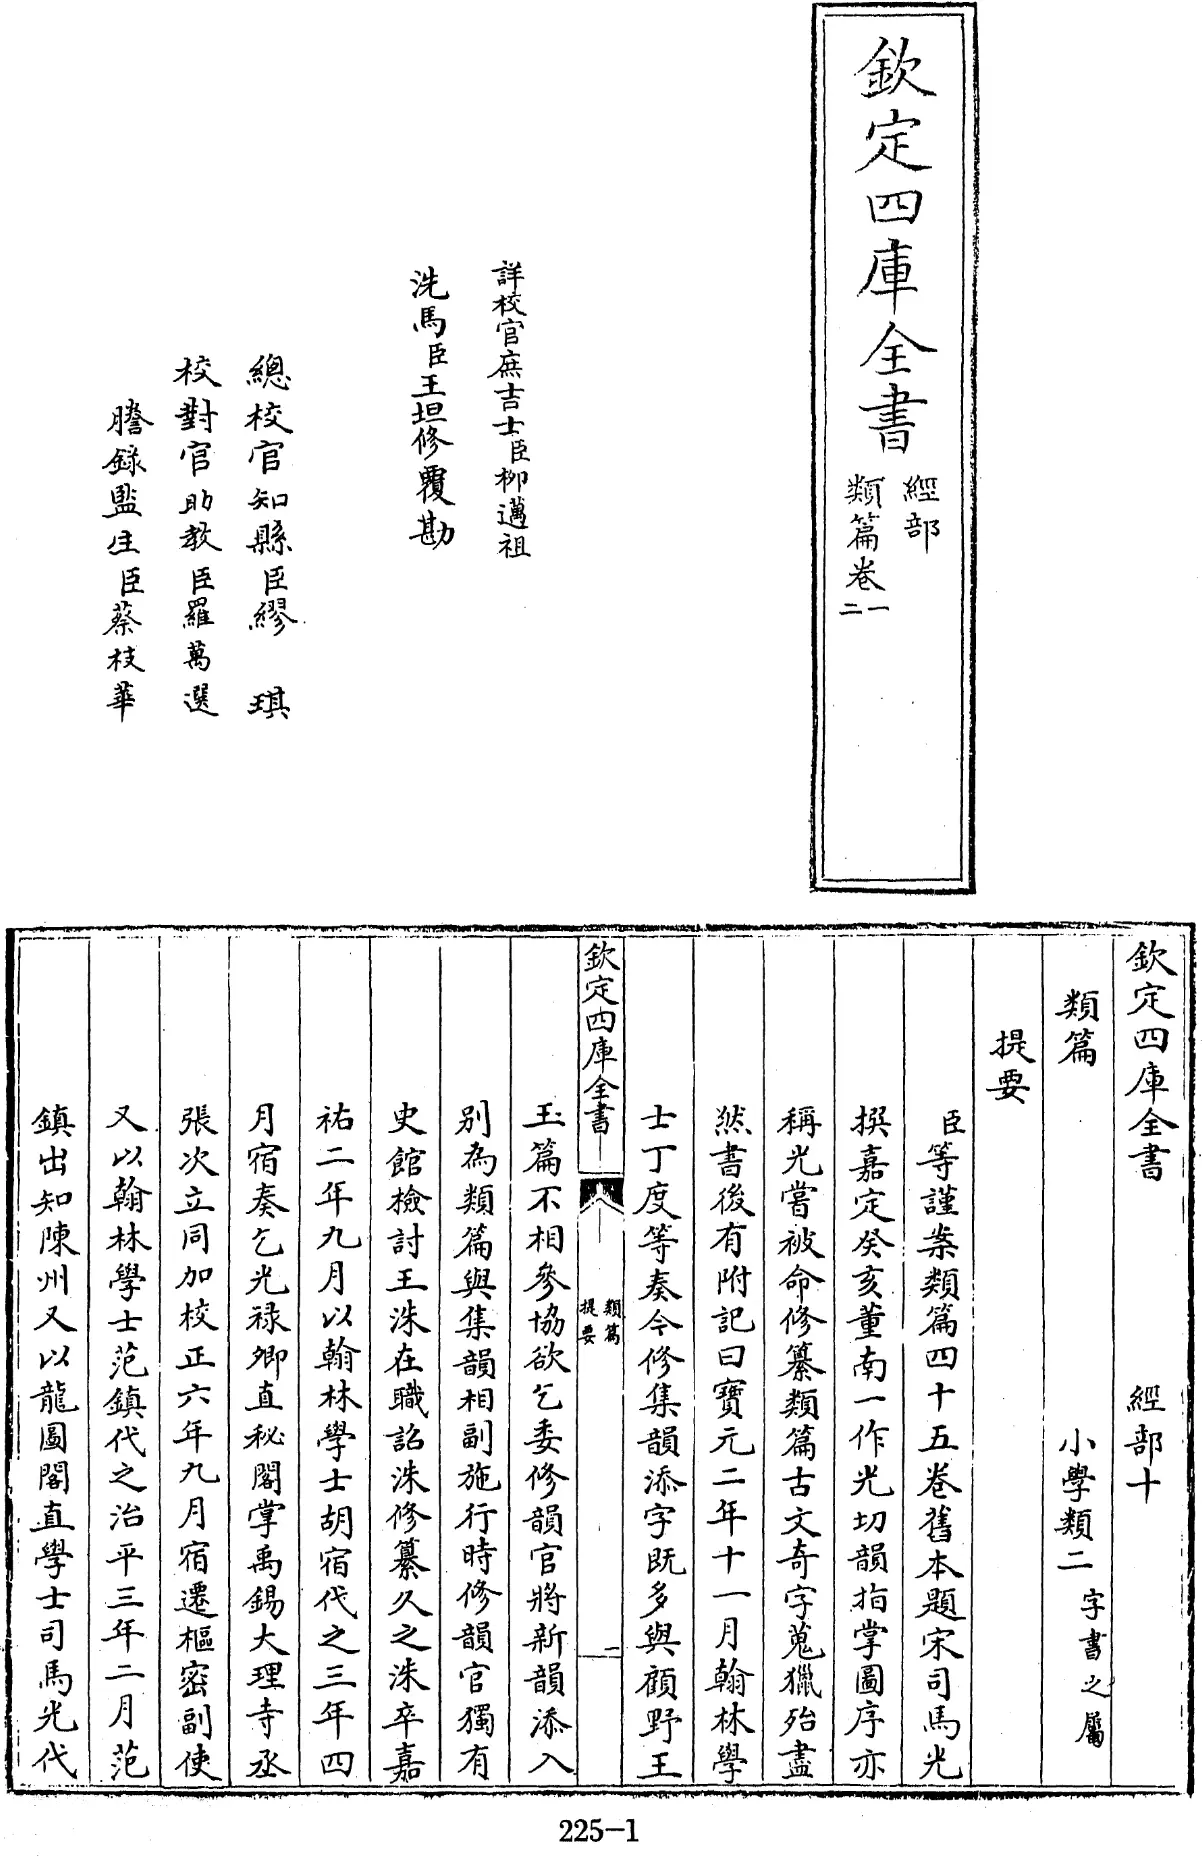 欽定四庫全書
經部
類篇卷一
二
詳校官庶吉士臣柳邁祖
洗馬臣王坦修覆勘
總校官知縣臣繆琪
校對官助教臣羅萬選
謄錄監生臣蔡枝華
欽定四庫全書 經部十
類篇 小學類二 字書之屬
提要
臣等謹案類篇四十五卷舊本題宋司馬光
撰嘉定癸亥董南一作光切韻指掌圖序亦
稱光嘗被命修纂類篇古文奇字蒐獵殆盡
然書後有附記曰寶元二年十一月翰林學
士丁度等奏今修集韻添字既多與顧野王
欽定四庫全書
類篇
提要
一
玉篇不相參協欲乞委修韻官將新韻添入
別為類篇與集韻相副施行時修韻官獨有
史館檢討王洙在職詔洙修纂久之洙卒嘉
祐二年九月以翰林學士胡宿代之三年四
月宿奏乞光祿卿直秘閣掌禹錫大理寺丞
張次立同加校正六年九月宿遷樞密副使
又以翰林學士范鎮代之治平三年二月范
鎮出知陳州又以龍圖閣直學士司馬光代
225-1